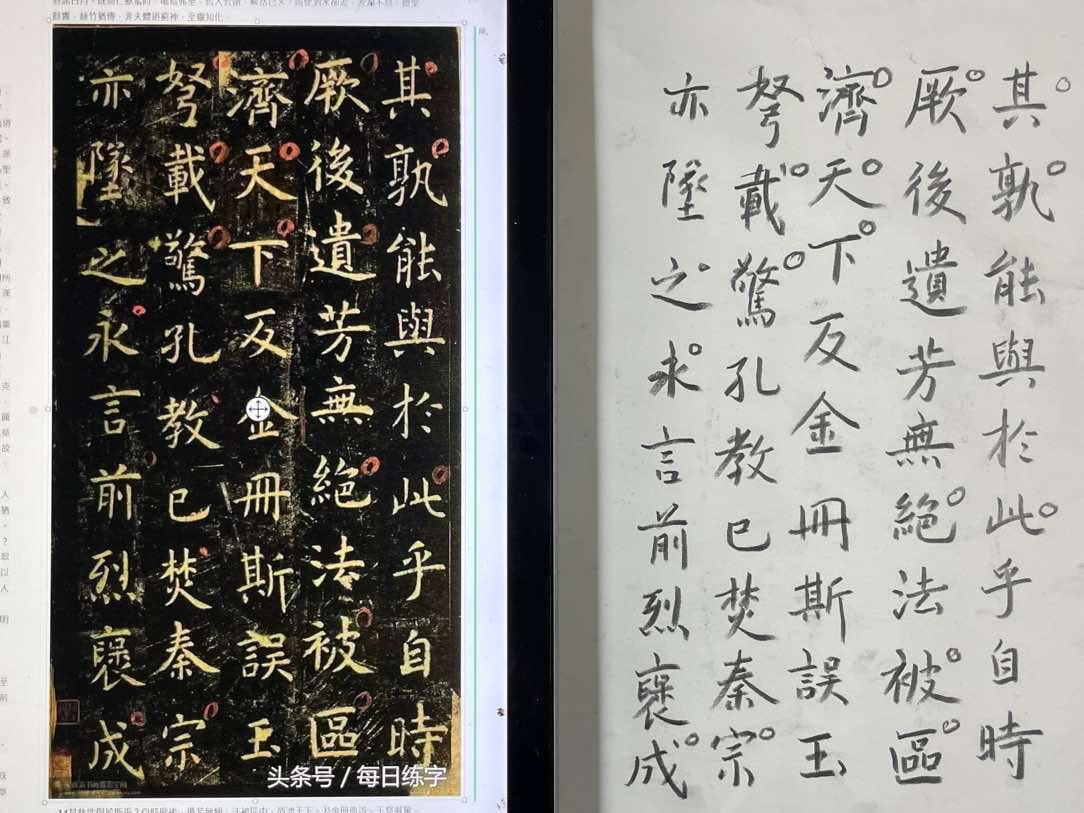 餘響，絲竹猶傳，非夫體道窮神，至靈知化，
其孰能與於此乎自時
厥後遺芳無絶法被區
濟天下反金冊斯誤玉
弩載驚孔教已焚秦宗
亦墜之永言前烈褒成
头条号 / 每日练字
其孰能與於此乎自時
厥後遺芳無絶法被區
濟天下反金冊斯誤玉
弩載驚孔教已焚秦宗
亦墜之永言前烈褒成